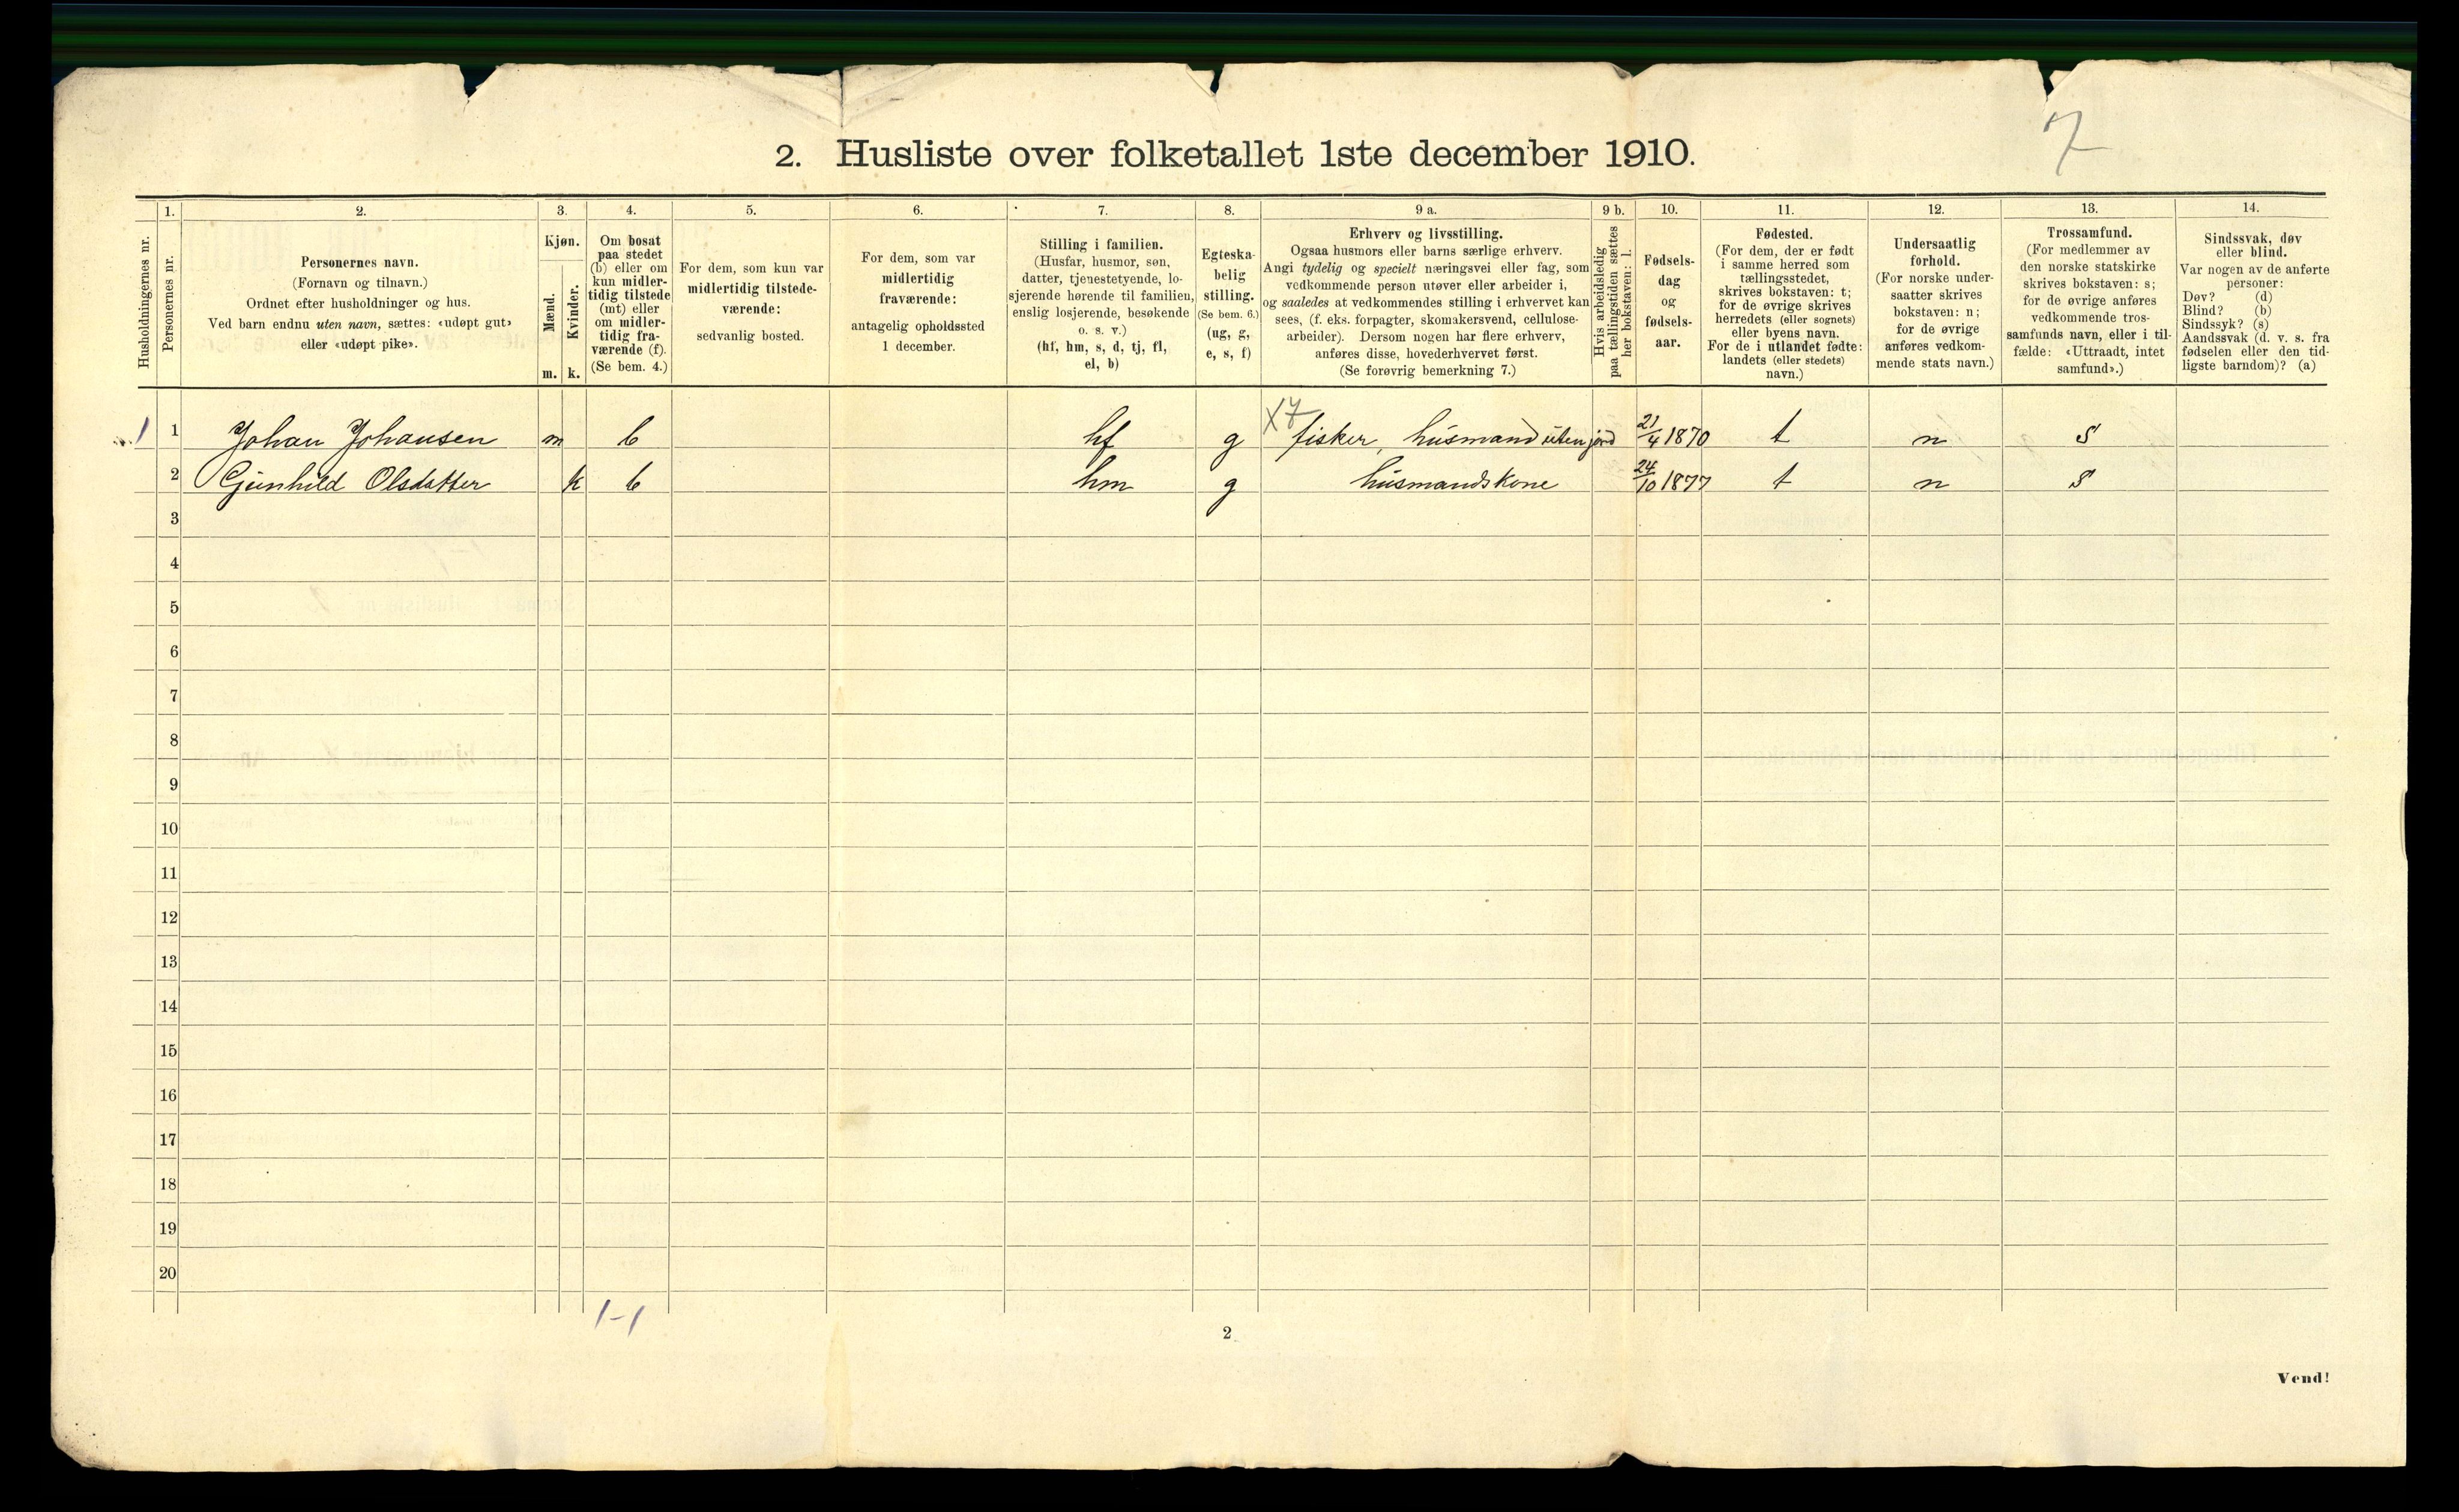 7
2. Husliste over folketallet 1ste december 1910.
Husholdningernes nr.
1.
Personernes nr.
2.
Personernes navn.
(Fornavn og tilnavn.)
Ordnet efter husholdninger og hus.
Ved barn endnu uten navn, sættes: «udøpt gut»
eller «udøpt pike».
3.
Kjøn.
Mænd.
Kvinder.
m. k.
4.
Om bosat
paa stedet
(b) eller om
kun midler-
tidig tilstede
(mt) eller
om midler-
tidig fra-
værende (f).
(Se bem. 4.)
5.
For dem, som kun var
midlertidig tilstede-
værende:
sedvanlig bosted.
6.
For dem, som var
midlertidig
fraværende:
antagelig opholdssted
1 december.
7.
Stilling i familien.
(Husfar, husmor, søn,
datter, tjenestetyende, lo-
sjerende hørende til familien,
enslig losjerende, besøkende
o. s. v.)
(hf, hm, s, d, tj, fl,
el, b)
8.
Egteska-
belig
stilling.
(Se bem. 6.)
(ug, g,
e, s, f)
9 a.
Erhverv og livsstilling.
Ogsaa husmors eller barns særlige erhverv.
Angi tydelig og specielt næringsvei eller fag, som
vedkommende person utøver eller arbeider i,
og saaledes at vedkommendes stilling i erhvervet kan
sees, (f. eks. forpagter, skomakersvend, cellulose-
arbeider). Dersom nogen har flere erhverv,
anføres disse, hovederhvervet først.
(Se forøvrig bemerkning 7.)
9 b.
Hvis arbeidsledig
paa tællingstiden sættes
her bokstaven: l.
10.
Fødsels-
dag
og
fødsels-
aar.
11.
Fødested.
(For dem, der er født
i samme herred som
tællingsstedet,
skrives bokstaven: t;
for de øvrige skrives
herredets (eller sognets)
eller byens navn.
For de i utlandet fødte:
landets (eller stedets)
navn.)
12.
Undersaatlig
forhold.
(For norske under-
saatter skrives
bokstaven: n;
for de øvrige
anføres vedkom-
mende stats navn.)
13.
Trossamfund.
(For medlemmer av
den norske statskirke
skrives bokstaven: s;
for de øvrige anføres
vedkommende tros-
samfunds navn, eller i til-
fælde: «Uttraadt, intet
samfund».)
14.
Sindssvak, døv
eller blind.
Var nogen av de anførte
personer:
Døv? (d)
Blind? (b)
Sindssyk? (s)
Aandssvak (d. v. s. fra
fødselen eller den tid-
ligste barndom)? (a)
1 1 Johan Johansen m b hf g X7 fisker, husmand uten jord 21/4 1870 t n s
2 Gunhild Olsdatter k b hm g husmandskone 24/10 1877 t n s
3
4
5
6
7
8
9
10
11
12
13
14
15
16
17
18
19
20
1-1
2
Vend!